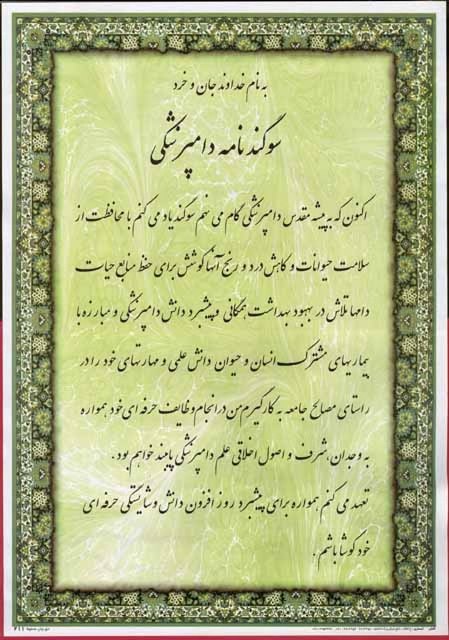 به نام خداوند جان و خرد
سوگند نامه دامپزشکی
اکنون که به پیشه مقدس دامپزشکی گام می نهم سوگند یاد می کنم با محافظت از
سلامت حیوانات و کاهش درد و رنج آنها کوشش برای حفظ منابع حیات
دامها تلاش در بهبود بهداشت همگانی و پیشبرد دانش دامپزشکی و مبارزه با
بیماریهای مشترک انسان و حیوان دانش علمی و مهارتهای خود را در
راستای مصالح جامعه به کار گیرم من در انجام وظایف حرفه ای خود همواره
به وجدان، شرف و اصول اخلاقی علم دامپزشکی پایبند خواهم بود .
تعهد می کنم همواره برای پیشبرد روز افزون دانش و شایستگی حرفه ای
خود کوشا باشم .
۲۱۱